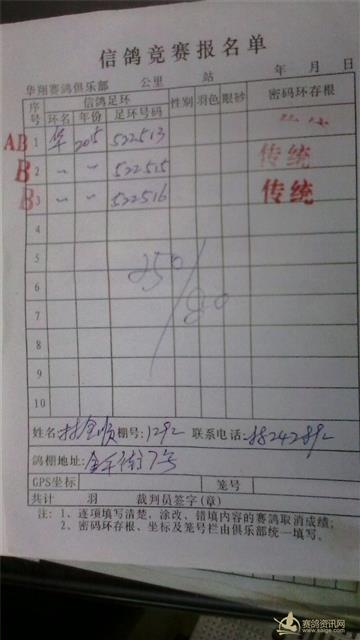 信鸽竞赛报名单
华翔赛鸽俱乐部 公里 站 年 月 日
序号 信鸽足环 性别 羽色 眼砂 密码环存根
环名 年份 足环号码
AB 1 华 2015 522513
B 2 〃 〃 522515 传统
B 3 〃 〃 522516 传统
4
5
6
7
8
9
10
250/80
姓名: 金顺 棚号: 1292 联系电话:
鸽棚地址: 街7号
GPS坐标 笼号
共计 羽 裁判员签字(章)
注: 1、逐项填写清楚、涂改、错填内容的赛鸽取消成绩;
2、密码环存根、坐标及笼号栏由俱乐部统一填写。
赛鸽资讯网
www.saige.com